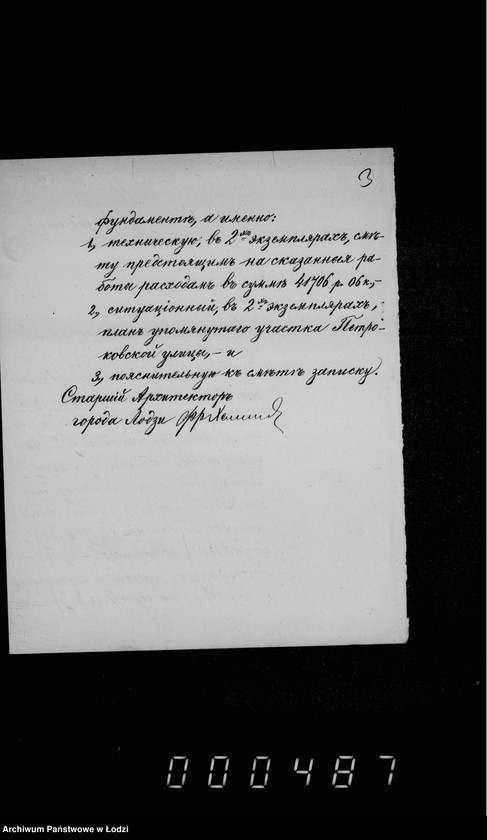 3
фундаментѣ, а именно:
1, техническую, въ 2хъ экземплярахъ, смѣ-
ту предстоящимъ на сказанныя ра-
боты расходамъ въ суммѣ 41706 р. 06 к,-
2, ситуаціонный, въ 2хъ экземплярахъ,
планъ упомянутаго участка Петро-
ковской улицы,- и
3, пояснительную къ смѣтѣ записку.
Старшій Архитекторъ
города Лодзи
000487
Archiwum Państwowe w Łodzi